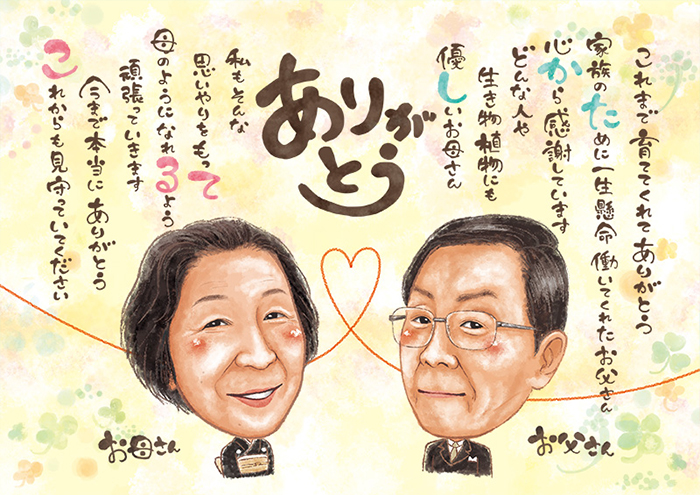 これまで育ててくれてありがとう
家族のために一生懸命働いてくれたお父さん
心から感謝しています
どんな人や
生き物植物にも
優しいお母さん
ありがとう
私もそんな
思いやりをもって
母のようになれるよう
頑張っていきます
今まで本当にありがとう
これからも見守っていてください
お父さん
お母さん